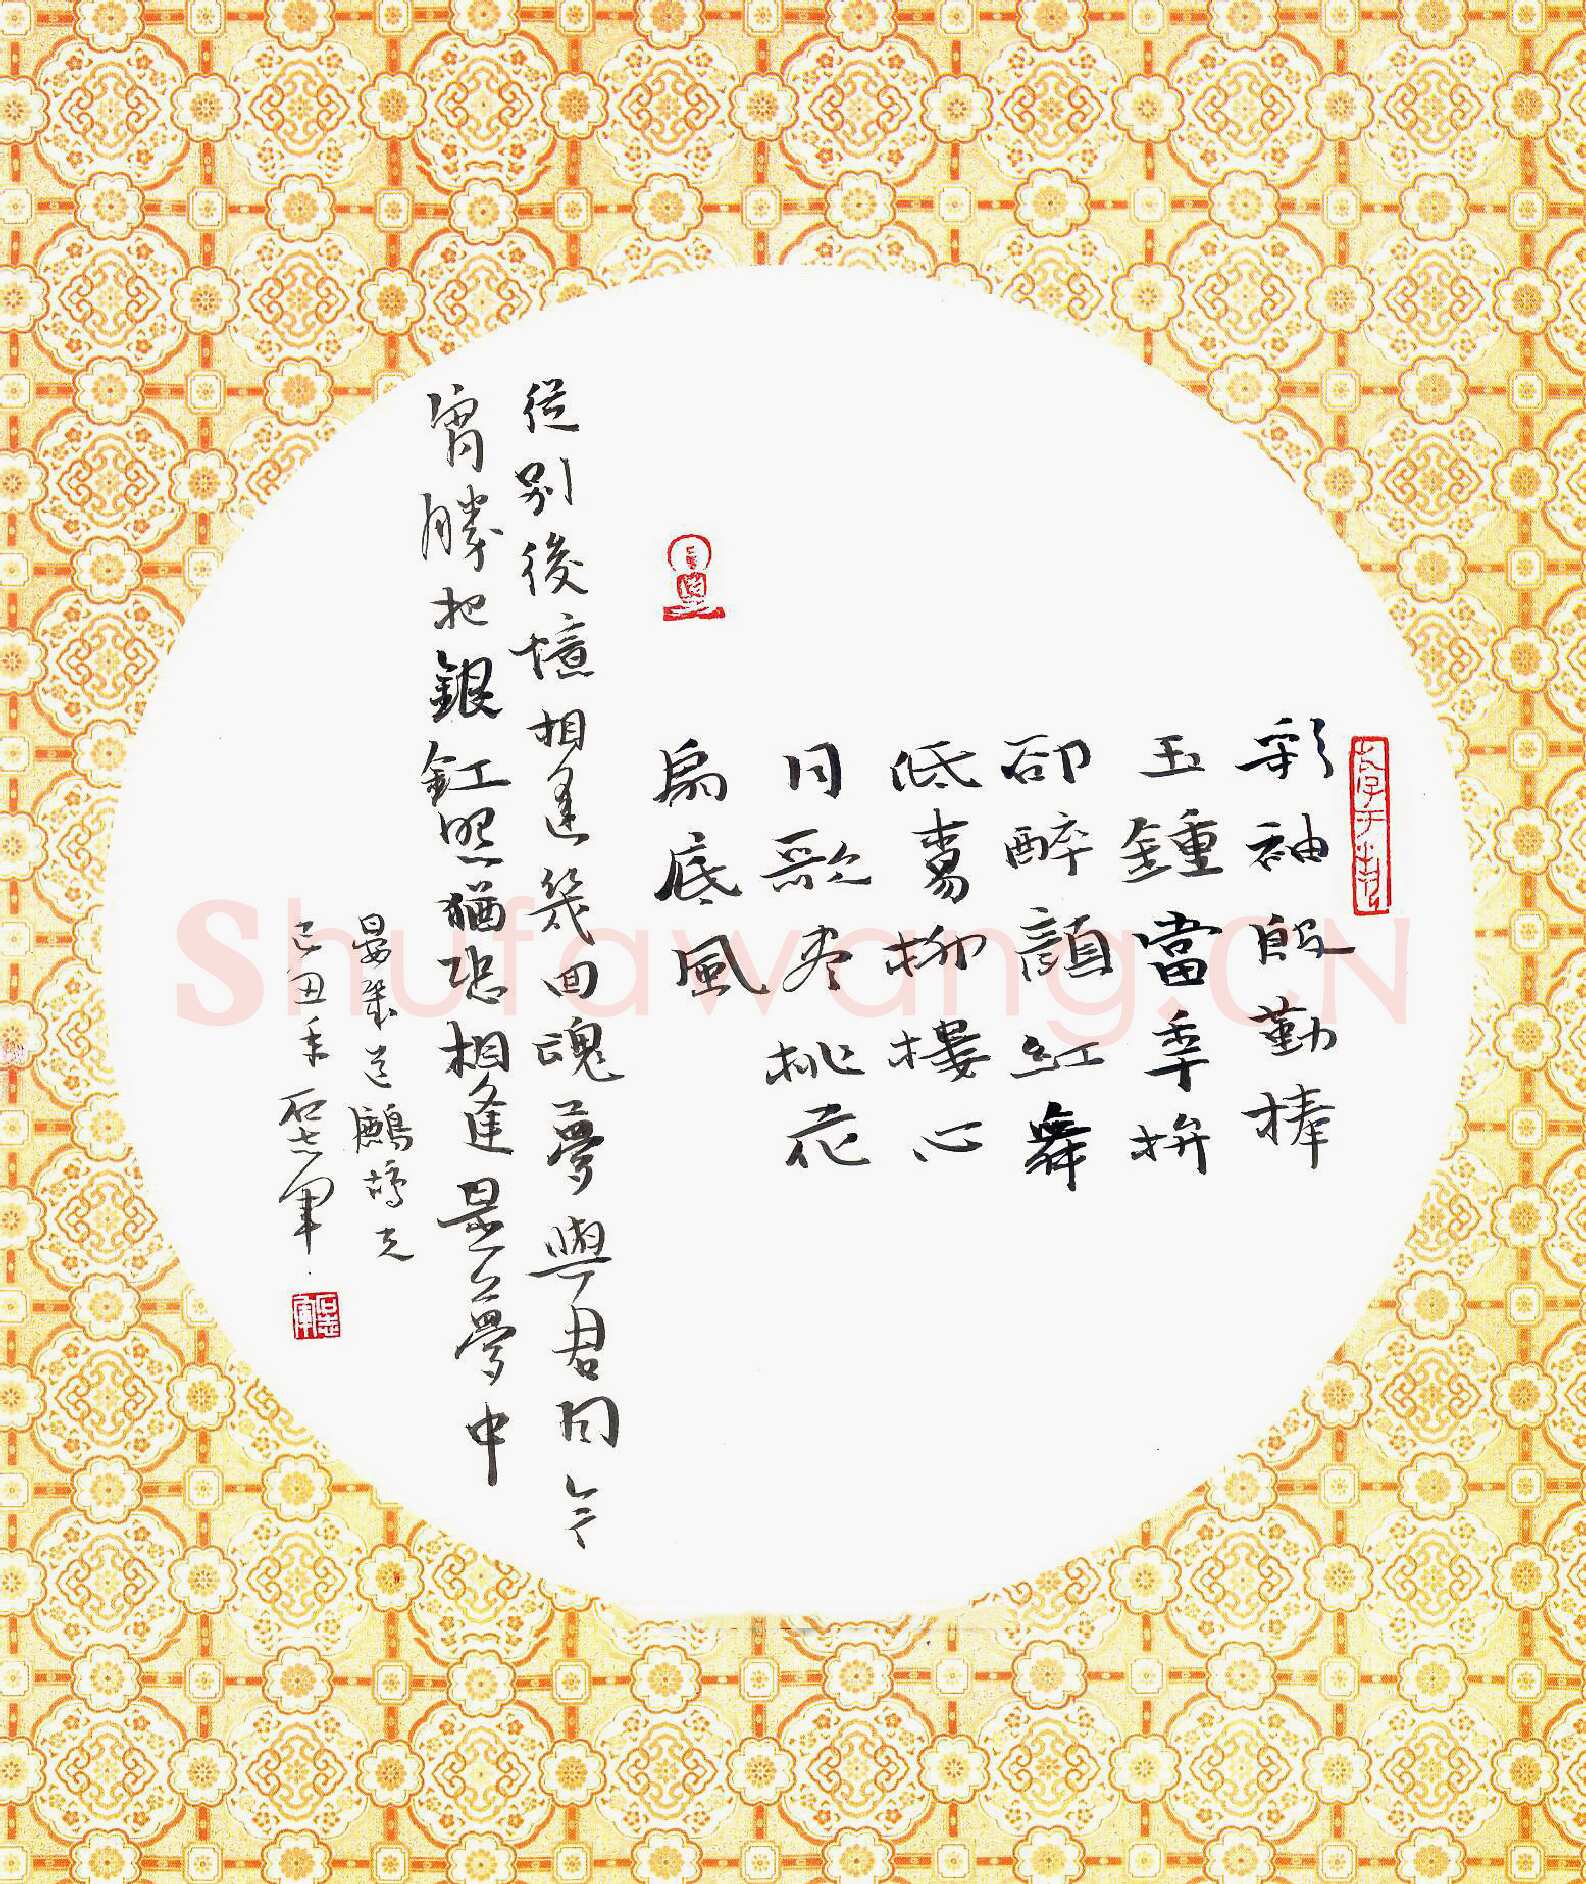 彩袖殷勤捧
玉鍾當秊拚
卻醉顏紅舞
低楊柳樓心
月歌尽桃花
扇底風
從別後憶相逢幾回魂夢與君同今
宵勝把銀釭照猶恐相逢是夢中
晏幾道鷓鴣天
己丑年石志軍
Shufawang.CN